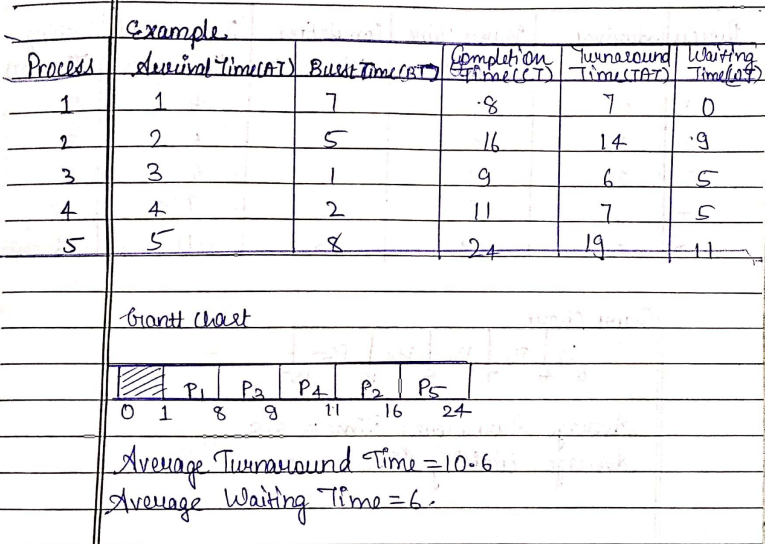 Example
Process Arrival Time(AT) Burst Time(BT) Completion Time(CT) Turnaround Time(TAT) Waiting Time(WT)
1 1 7 8 7 0
2 2 5 16 14 9
3 3 1 9 6 5
4 4 2 11 7 5
5 5 8 24 19 11
Grantt Chart
P1 P3 P4 P2 P5
0 1 8 9 11 16 24
Average Turnaround Time = 10.6
Average Waiting Time = 6.